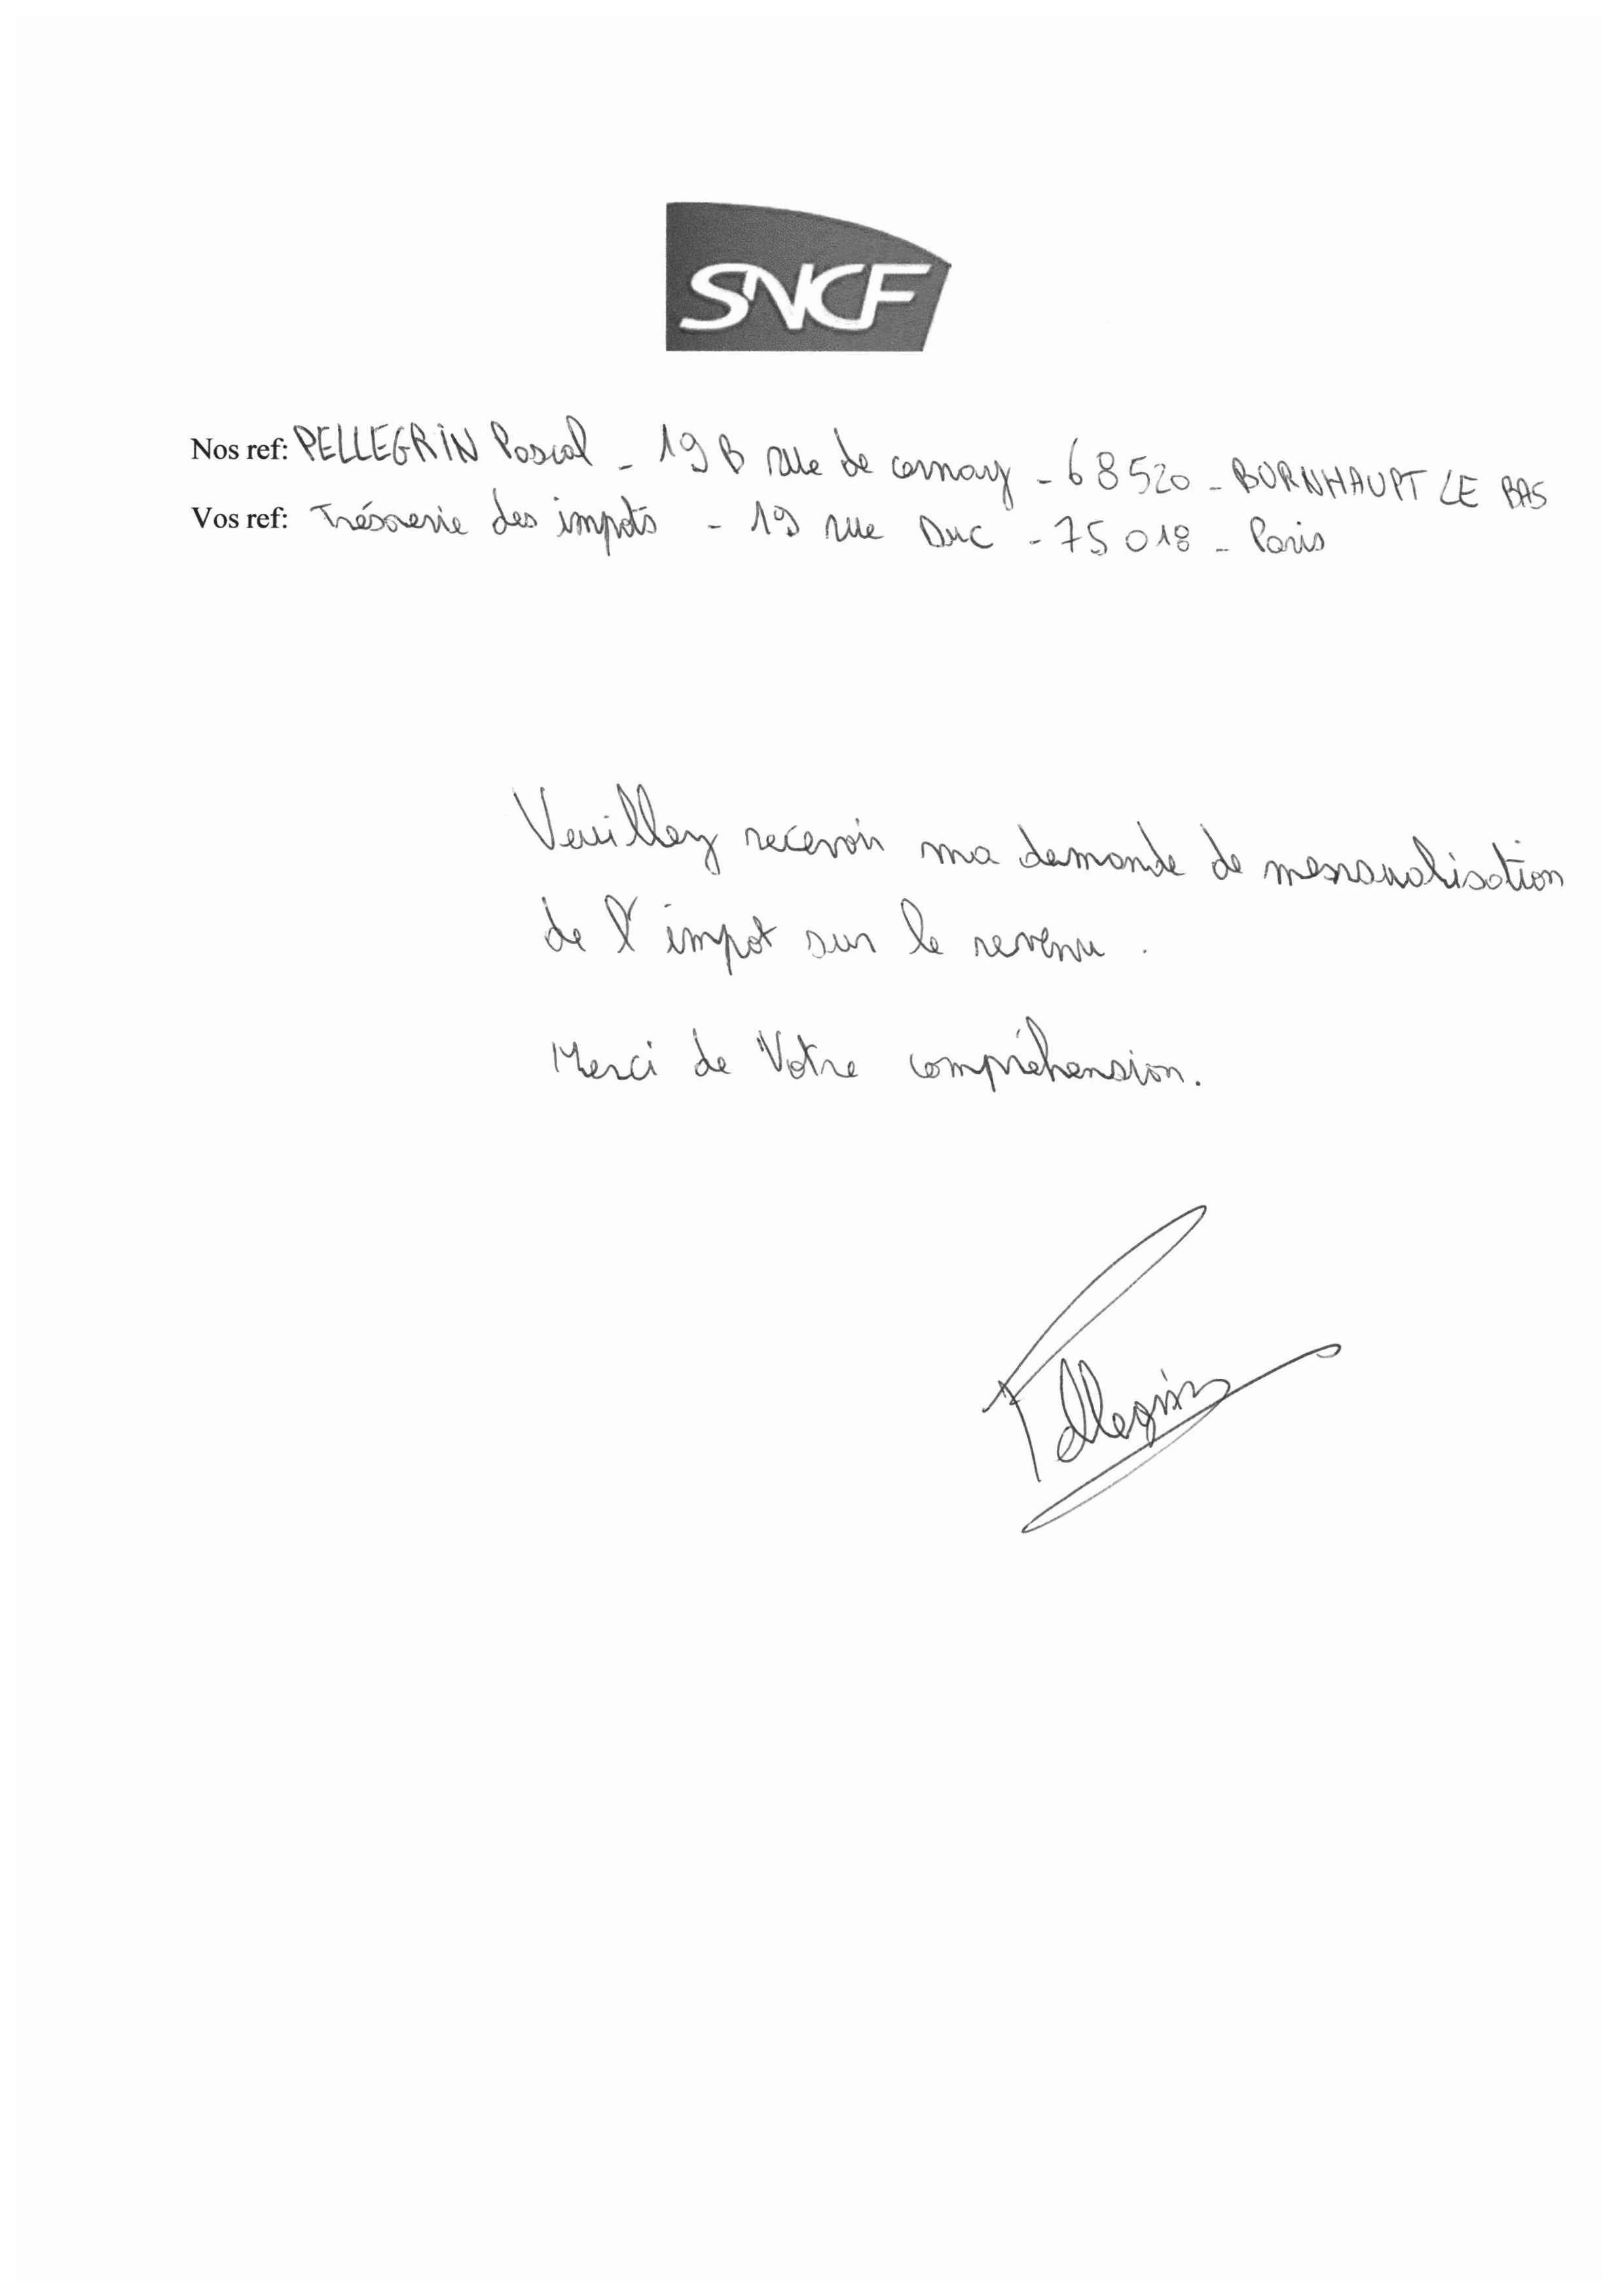 SNCF
Nos ref: PELLEGRIN Pascal - 19 B rue de cernay - 68520 - BURNHAUPT LE BAS
Vos ref: Trésorerie des impots - 19 rue Duc - 75018 - Paris
Veuillez recevoir ma demande de mensualisation
de l'impot sur le revenu.
Merci de Votre compréhension.
Pellegrin